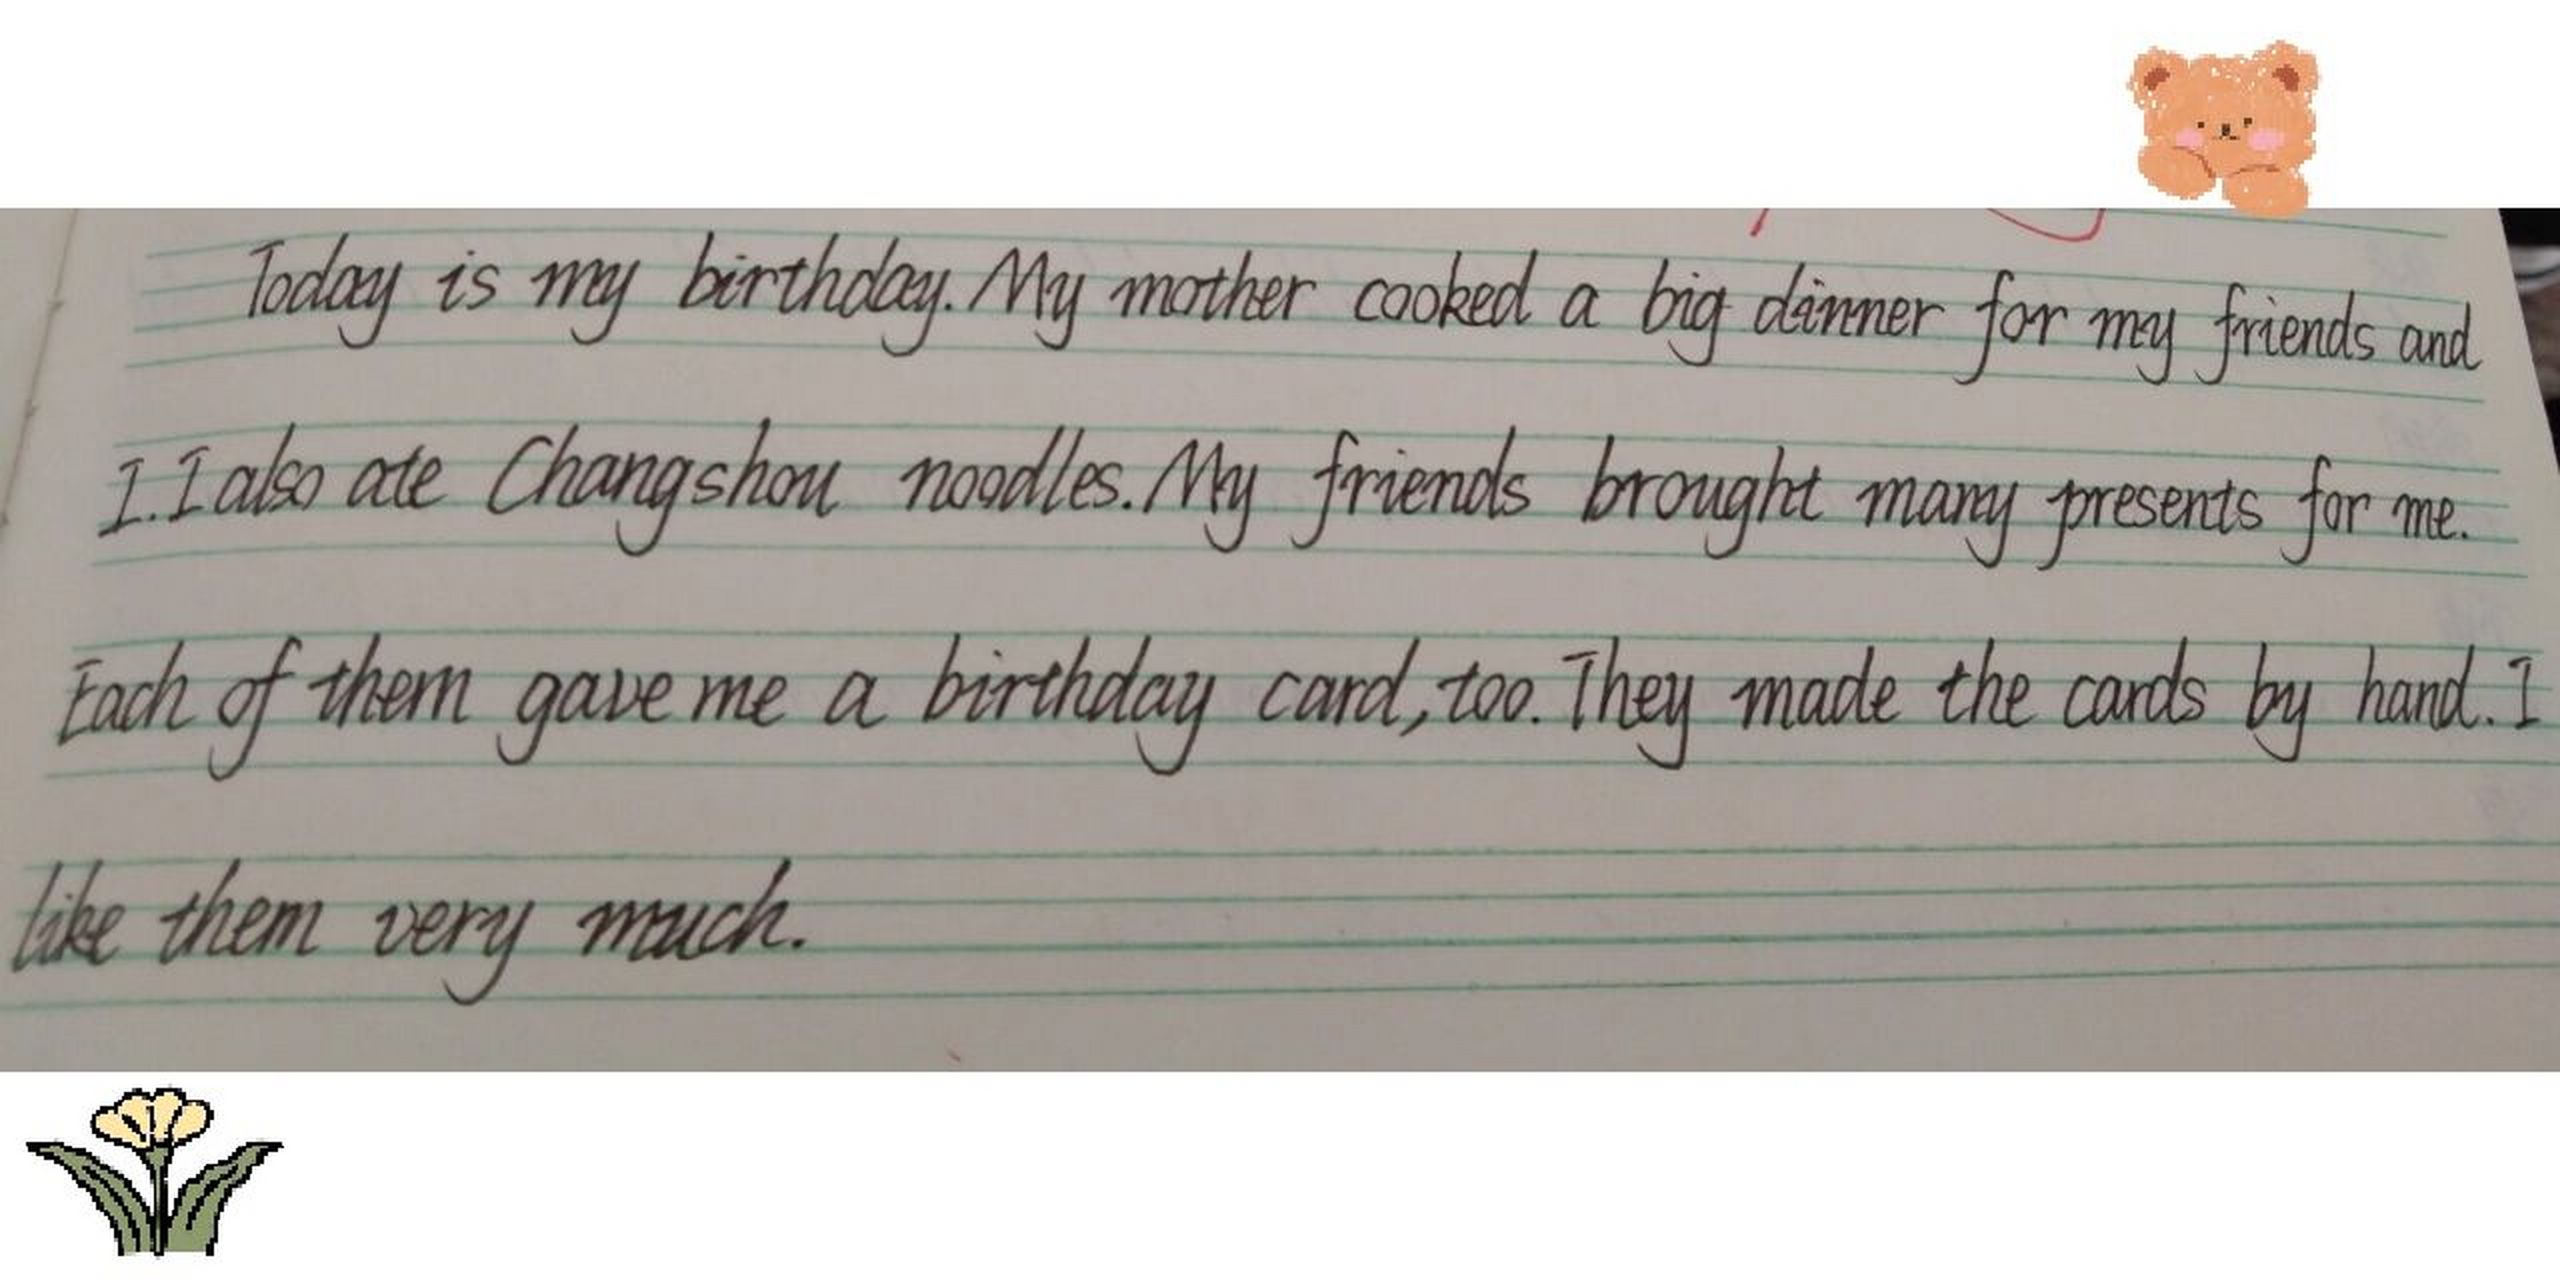 Today is my birthday. My mother cooked a big dinner for my friends and
I. I also ate Changshou noodles. My friends brought many presents for me.
Each of them gave me a birthday card, too. They made the cards by hand. I
like them very much.